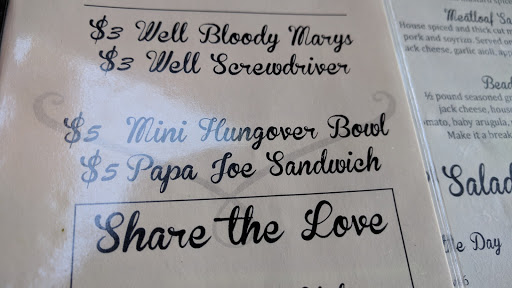 $3 Well Bloody Marys
$3 Well Screwdriver
$5 Mini Hungover Bowl
$5 Papa Joe Sandwich
Share the Love
Meatloaf Sa
House spiced and thick cut m
pork and soyrizo. Served on
ack cheese, garlic aioli, app
Bead
½ pound seasoned gr
jack cheese, hous
omato, baby arugula,
Make it a break
Salad
e Day